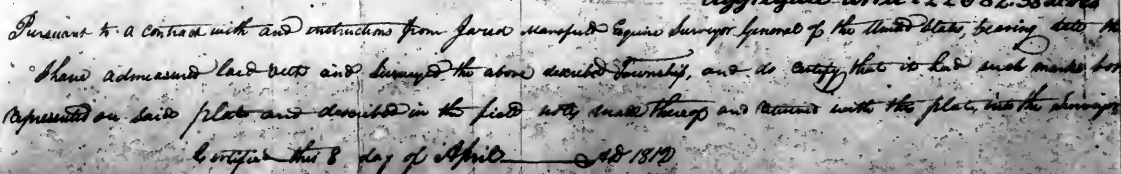 Aggregate 22982.38 acres
Pursuant to a contract with and instructions from Jared Mansfield Esquire Surveyor General of the United States, bearing date the
I have admeasured laid out and Surveyed the above described Township, and do certify that it had such marks
represented on said plat and described in the field notes made thereof and returned with the plat, into the Surveyor
Certified this 8 day of April AD 1812